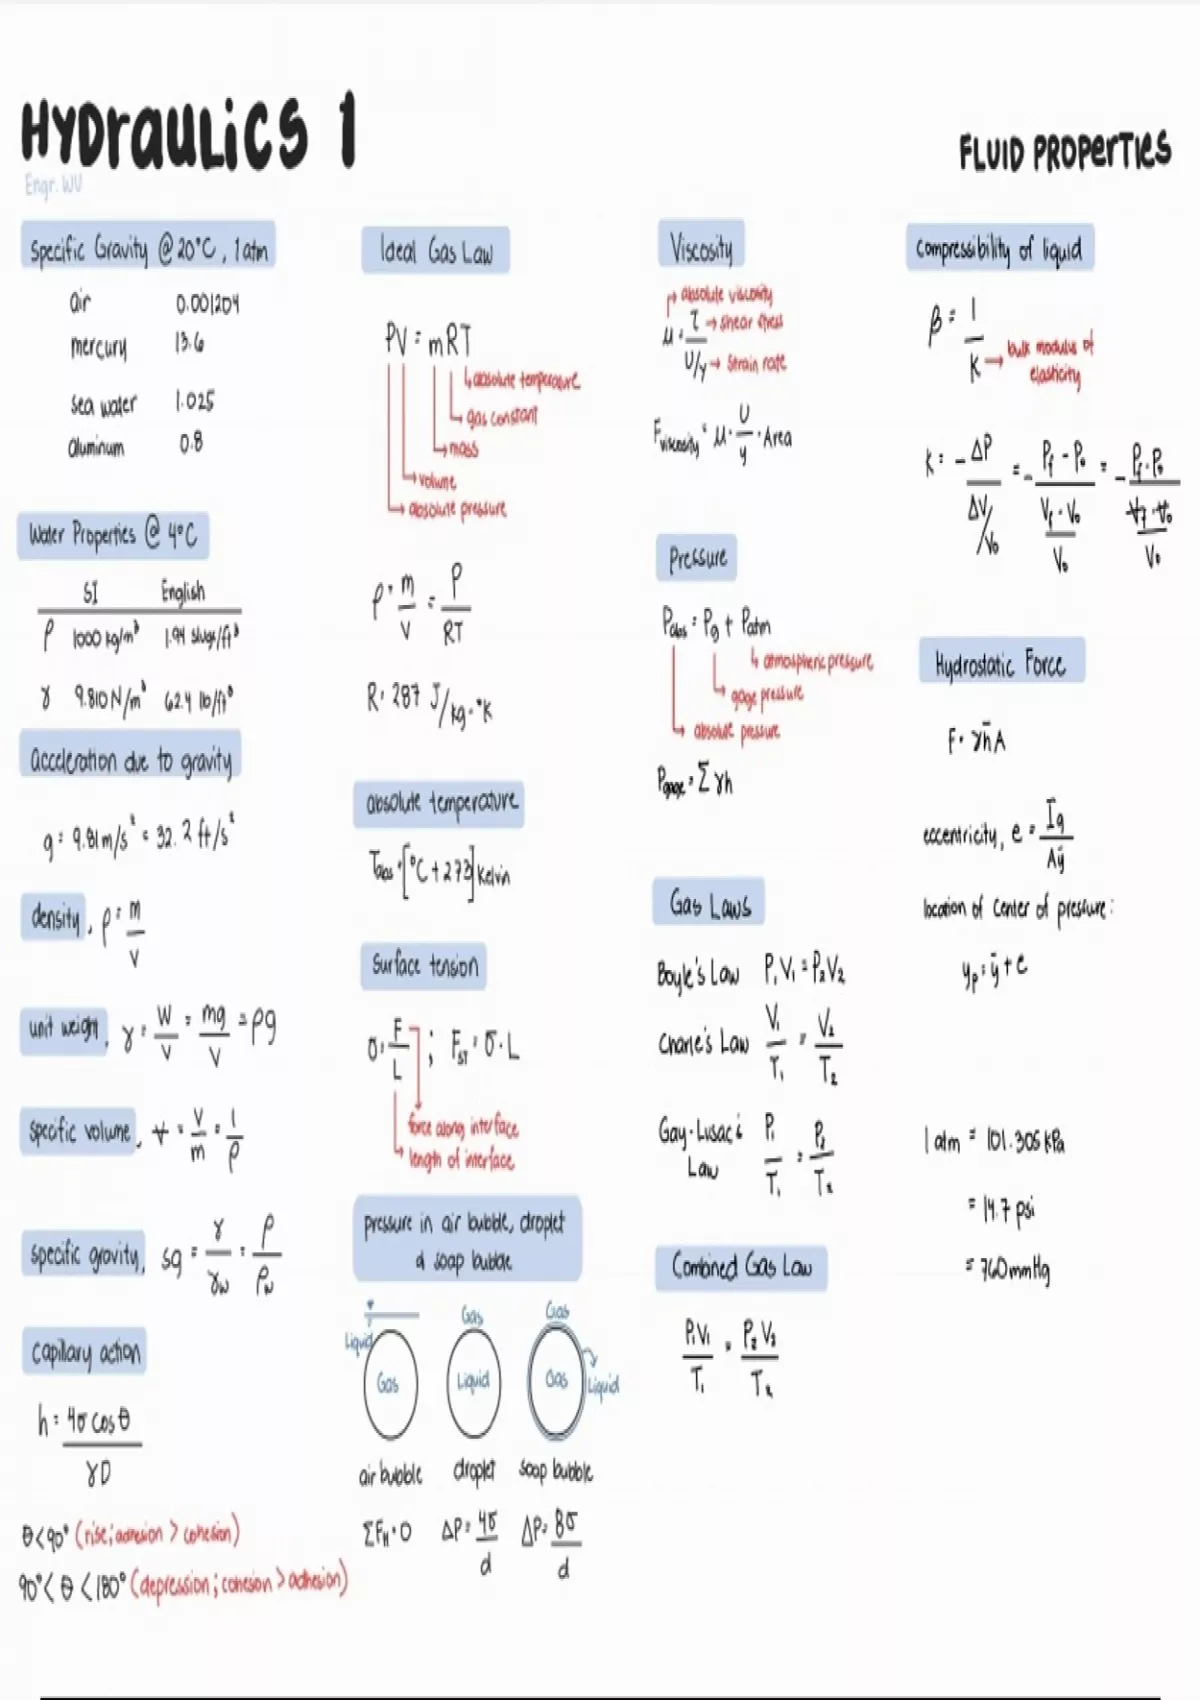 HYDRAULICS 1
Engr. WV
FLUID PROPERTIES
Specific Gravity @ 20°C, 1 atm
air 0.001204
mercury 13.6
sea water 1.025
aluminum 0.8
Water Properties @ 4°C
SI English
ρ 1000 kg/m³ 1.94 slugs/ft³
γ 9.810 N/m³ 62.4 lb/ft³
acceleration due to gravity
g = 9.81 m/s² = 32.2 ft/s²
density, ρ = m/V
unit weight, γ = W/V = mg/V = ρg
specific volume, V = V/m = 1/ρ
specific gravity, sg = γ/γw = ρ/ρw
capillary action
h = 4σ cos θ / γD
θ < 90° (rise; adhesion > cohesion)
90° < θ < 180° (depression; cohesion > adhesion)
Ideal Gas Law
PV = mRT
absolute temperature
gas constant
mass
volume
absolute pressure
ρ = m/V = P/RT
R = 287 J/kg·°K
absolute temperature
Tabs = [°C + 273] Kelvin
Surface tension
σ = F/L ; FST = σ · L
force along interface
length of interface
pressure in air bubble, droplet
& soap bubble
Gas Gas
Liquid
Gas Liquid Gas Liquid
air bubble droplet soap bubble
ΣFH = 0 ΔP = 4σ/d ΔP = 8σ/d
Viscosity
absolute viscosity
μ = τ → shear stress
U/y → strain rate
Fviscosity = μ · U/y · Area
Pressure
Pabs = Pg + Patm
atmospheric pressure
gage pressure
absolute pressure
Pgage = Σ γh
Gas Laws
Boyle's Law P₁V₁ = P₂V₂
Charle's Law V₁/T₁ = V₂/T₂
Gay-Lusac's Law P₁/T₁ = P₂/T₂
Combined Gas Law
P₁V₁/T₁ = P₂V₂/T₂
compressibility of liquid
β = 1/K
bulk modulus of
elasticity
K = - ΔP/(ΔV/V₀) = - (Pf - P₀)/((Vf - V₀)/V₀) = - (Pf - P₀)/((Vf - V₀)/V₀)
Hydrostatic Force
F = γh̄A
eccentricity, e = Ig/Aȳ
location of center of pressure:
yp = ȳ + e
1 atm = 101.305 kPa
= 14.7 psi
= 760 mmHg